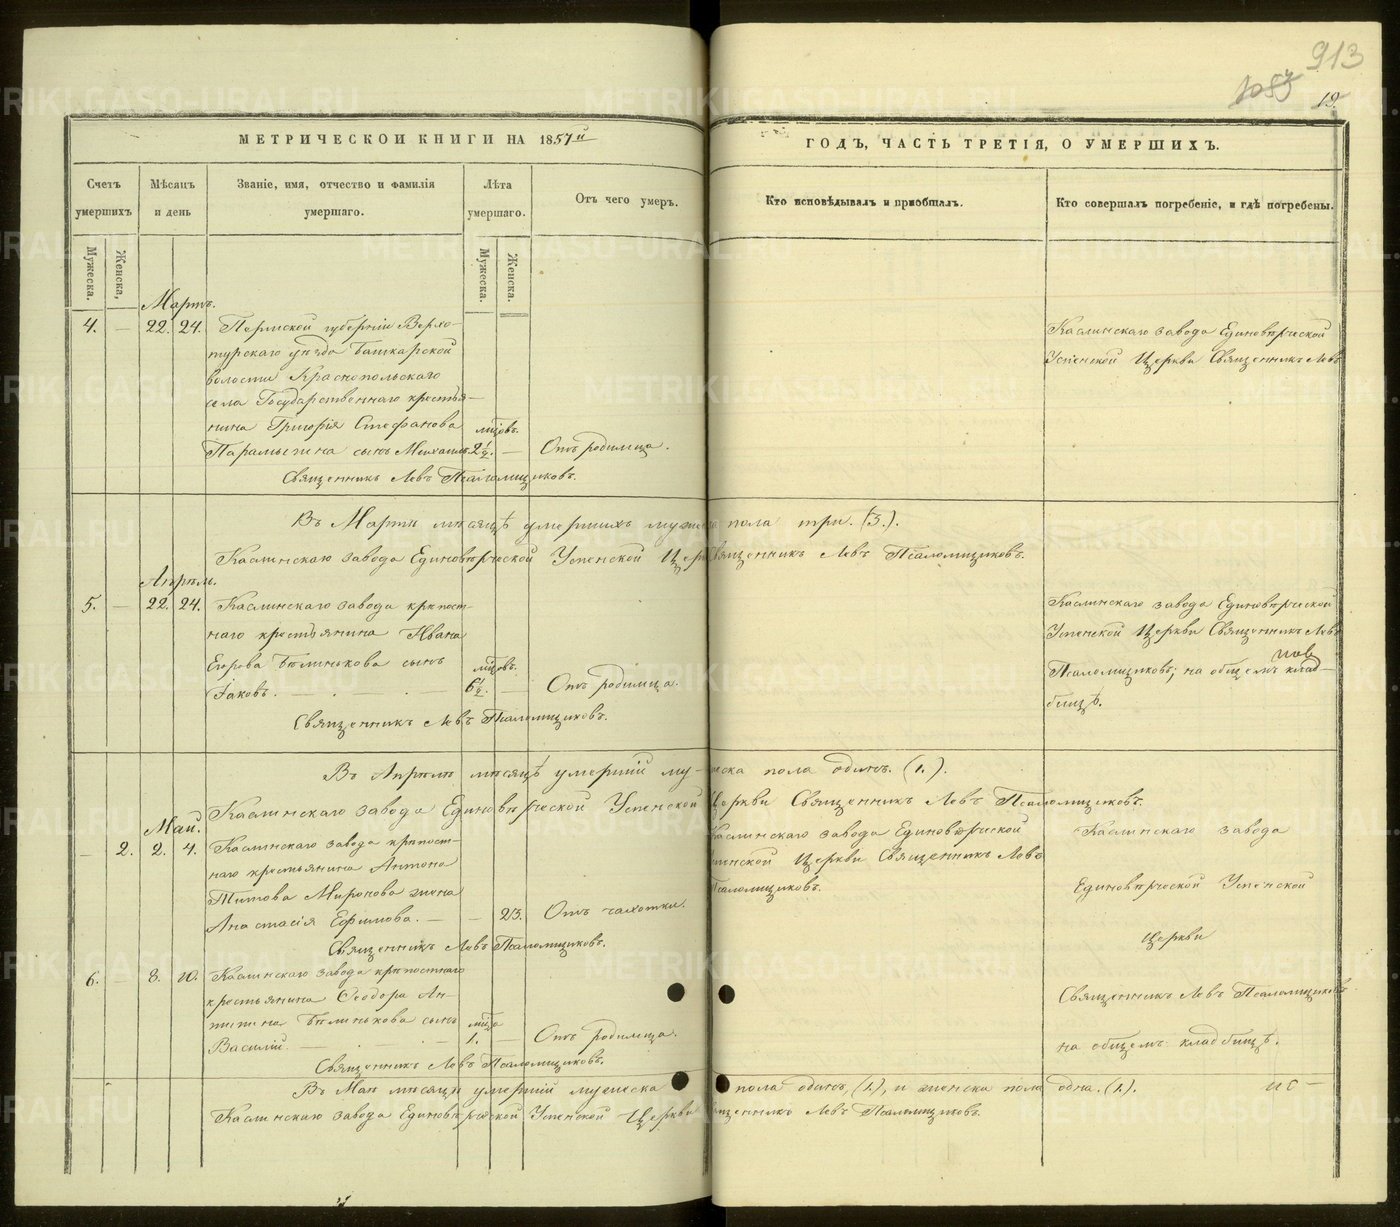 913
1053
19.
МЕТРИЧЕСКОЙ КНИГИ НА 1857й
ГОДЪ, ЧАСТЬ ТРЕТІЯ, О УМЕРШИХЪ.
Счетъ умершихъ
Мѣсяцъ и день
Званіе, имя, отчество и фамилія умершаго.
Лѣта умершаго.
Отъ чего умеръ.
Кто исповѣдывалъ и пріобщалъ.
Кто совершалъ погребеніе, и гдѣ погребены.
Мужеска.
Женска,
Мужеска.
Женска.
Мартъ.
4. — 22. 24. Пермской губерніи Верхо-
турскаго уѣзда Башкарской
волости Краснопольскаго
села Государственнаго крестья-
нина Григорія Стефанова мѣсяцовъ.
Парамыгина сынъ Михаилъ. 2½. — Отъ родимца.
Священникъ Левъ Псаломщиковъ.
Каслинскаго завода Единовѣрческой
Успенской Церкви Священникъ Левъ
Въ Мартѣ мѣсяцѣ умершихъ мужеска пола три. (3.).
Каслинскаго завода Единовѣрческой Успенской Церкви Священникъ Левъ Псаломщиковъ.
Апрѣль.
5. — 22. 24. Каслинскаго завода крѣпост-
наго крестьянина Ивана
Егорова Блинькова сынъ мѣсяцовъ.
Іаковъ. — 6½. — Отъ родимца.
Священникъ Левъ Псаломщиковъ.
Каслинскаго завода Единовѣрческой
Успенской Церкви Священникъ Левъ
Псаломщиковъ, на общемъ клад-
бищѣ.
Въ Апрѣлѣ мѣсяцѣ умершій мужеска пола одинъ. (1.).
Каслинскаго завода Единовѣрческой Успенской Церкви Священникъ Левъ Псаломщиковъ.
Май.
— 2. 2. 4. Каслинскаго завода крѣпост-
наго крестьянина Антона
Титова Миронова жена
Анастасія Ефимова. — — 23. Отъ чахотки.
Священникъ Левъ Псаломщиковъ.
Каслинскаго завода Единовѣрческой
Успенской Церкви Священникъ Левъ
Псаломщиковъ.
Каслинскаго завода
Единовѣрческой Успенской
Церкви
Священникъ Левъ Псаломщиковъ
на общемъ кладбищѣ.
6. — 8. 10. Каслинскаго завода крѣпостнаго
крестьянина Ѳеодора Ан-
типина Блинькова сынъ лѣта
Василій. — 1. — Отъ родимца.
Священникъ Левъ Псаломщиковъ.
Въ Маѣ мѣсяцѣ умершій мужеска пола одинъ, (1.), и женска пола одна. (1.).
Каслинскаго завода Единовѣрческой Успенской Церкви Священникъ Левъ Псаломщиковъ.
METRIKI.GASO-URAL.RU